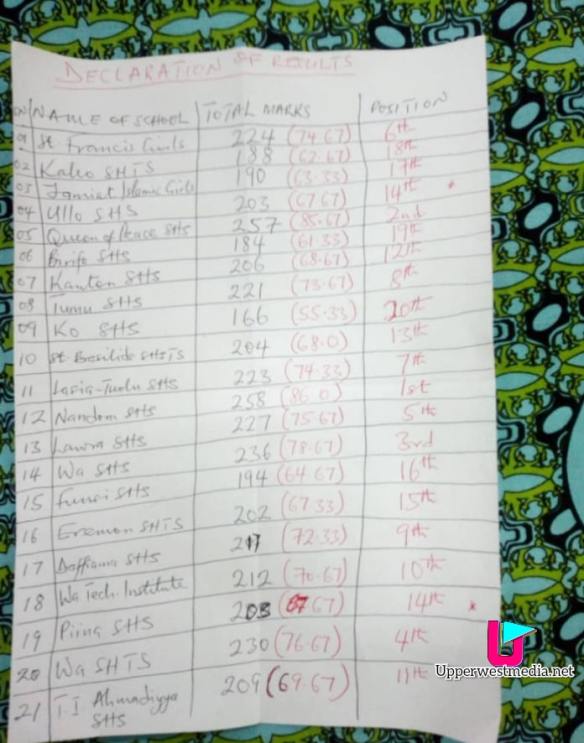 DECLARATION OF RESULTS
S/N NAME OF SCHOOL TOTAL MARKS POSITION
01 St. Francis Girls 224 (74.67) 6th
02 Kaleo SHTS 188 (62.67) 18th
03 Jamiat Islamic Girls 190 (63.33) 17th
04 Ullo SHS 203 (67.67) 14th *
05 Queen of Peace SHS 257 (85.67) 2nd
06 Birifo SHS 184 (61.33) 19th
07 Kanton SHS 206 (68.67) 12th
08 Tumu SHS 221 (73.67) 8th
09 Ko SHS 166 (55.33) 20th
10 St Basilide SHTS 204 (68.0) 13th
11 Lasia-Tuolu SHS 223 (74.33) 7th
12 Nandom SHS 258 (86.0) 1st
13 Lawra SHS 227 (75.67) 5th
14 Wa SHS 236 (78.67) 3rd
15 Funsi SHS 194 (64.67) 16th
16 Eremon SHTS 202 (67.33) 15th
17 Daffiama SHS 217 (72.33) 9th
18 Wa Tech. Institute 212 (70.67) 10th
19 Piina SHS 203 (67.67) 14th *
20 Wa SHTS 230 (76.67) 4th
21 T.I Ahmadiyya 209 (69.67) 11th
SHS
Upperwestmedia.net